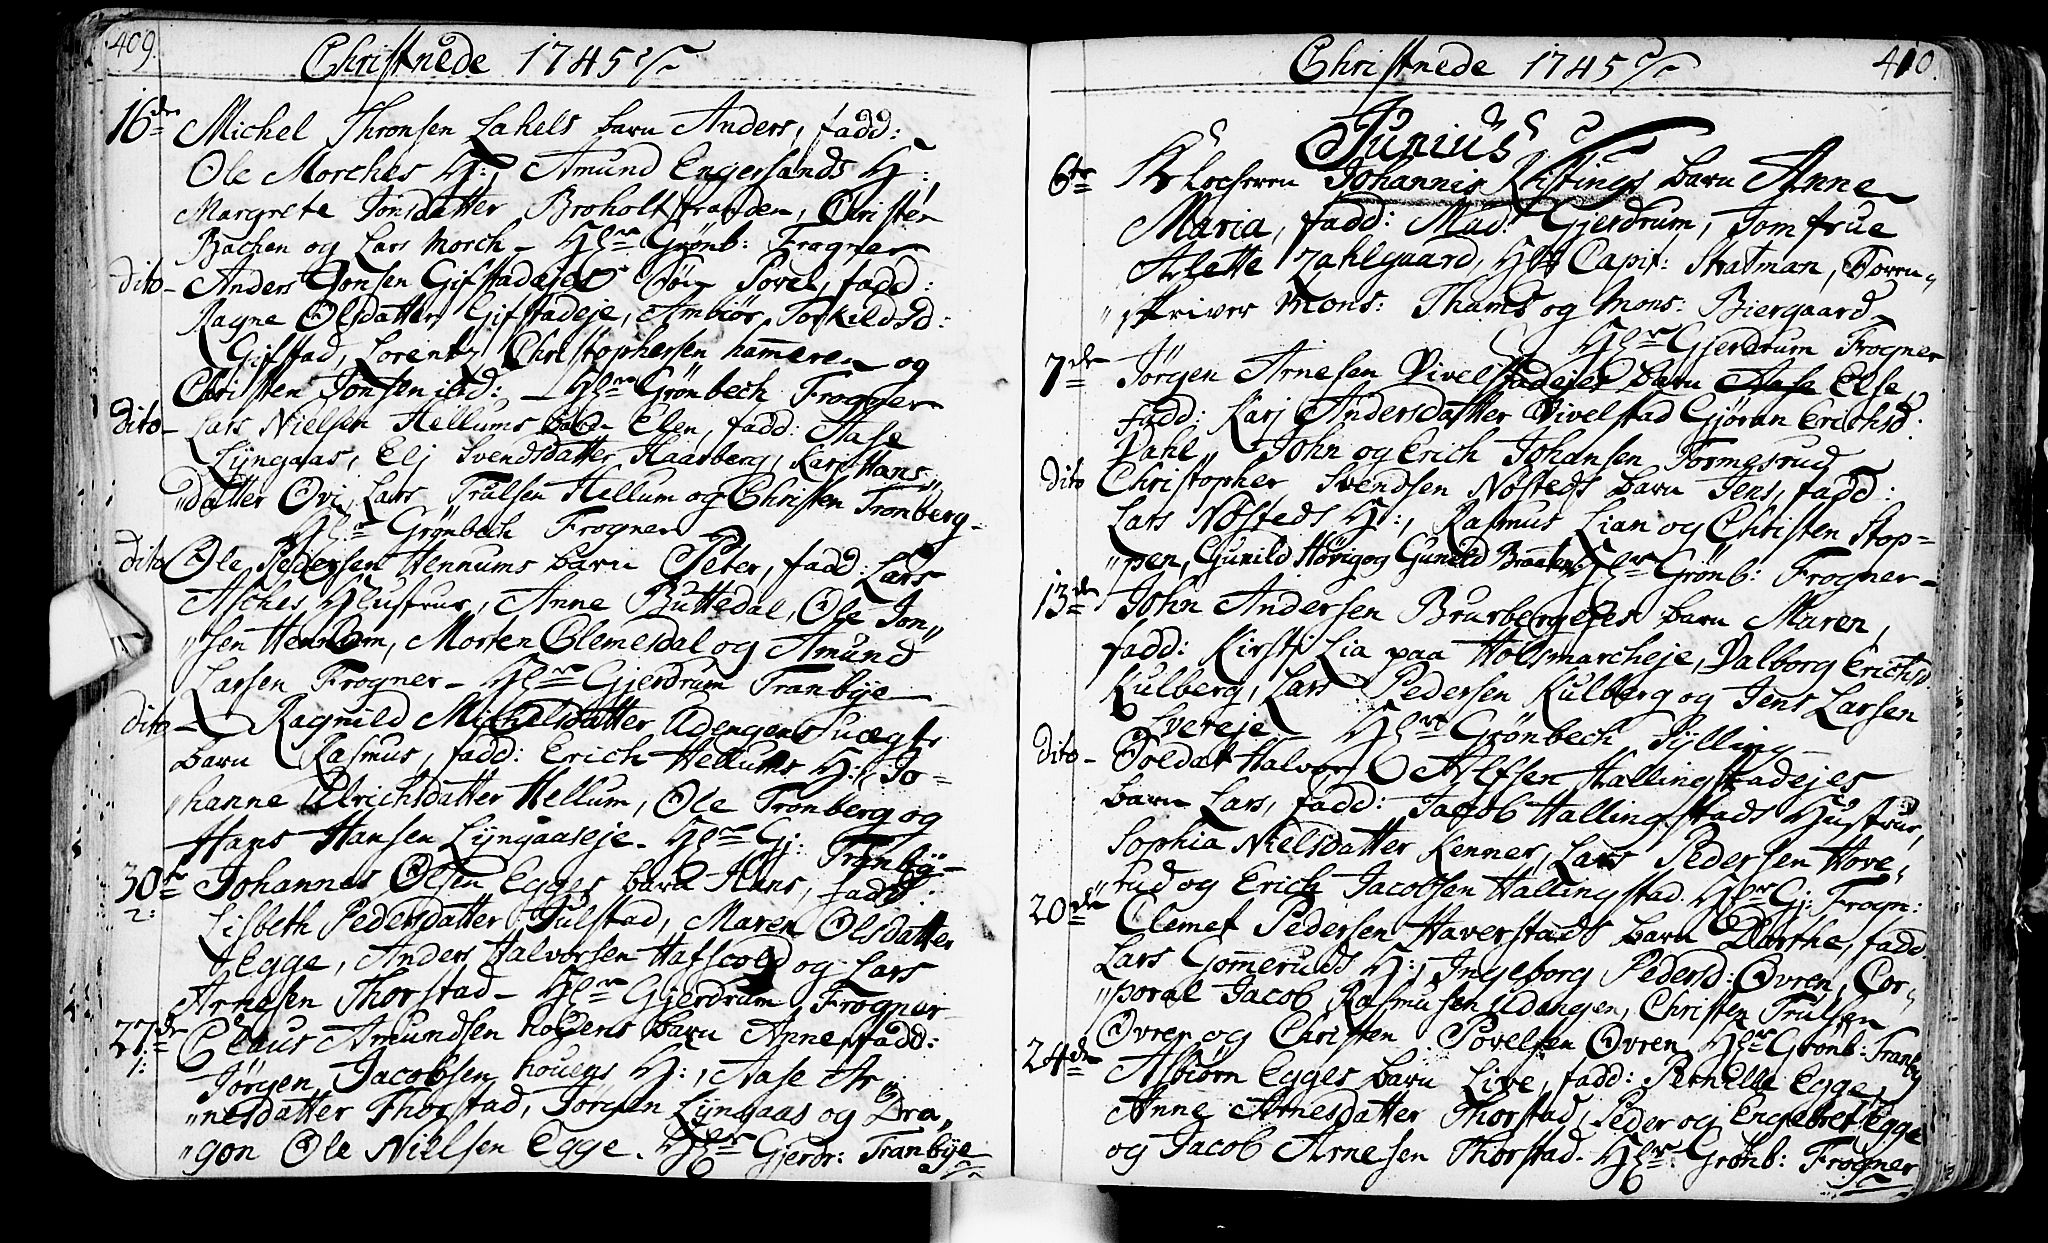 409.
Christnede 1745
16de Michel Thronsen Lahels barn Anders, fadd:
Ole Morches H:, Amund Engersands H:,
Margrete Jonsdatter Broholtstranden, Christen
Bachen og Lars Morch - Hr Grönb: Frogner
dito - Anders Jonsen Gifstadejes Povel, fadd:
Ragne Olsdatter Gifstadeje, Ambiör Torkildsd:
Gifstad, Lorentz Christophersen hammeren og
Christen Jonsen ibd: - Hr Grönbech Frogner
dito - Lars Nielsen Hellums barn Elen, fadd: Aase
Lyngaas, Elj Svendsdatter Haarberg, Kari Hans„
„datter Ovi, Lars Trulsen Hellum og Christen Tronberg -
Hr Grönbech Frogner
dito Ole Pedersen Hennums barn Peter, fadd: Lars
Asches Hustrue, Anne Buttedal, Ole Jon„
„sen Hennum, Morten Clemesdal og Amund
Larsen Frogner - Hr Gjerdrum Tranbye -
dito - Ragnild Michelsdatter Udengens uægte
barn Rasmus, fadd: Erich Hellums H:, Jo=
hanne Ulrichsdatter Hellum, Ole Tronberg og
Hans Hansen Lyngaaseje - Hr Gj: Tranby -
30te Johannes Olsen Egges barn Hans, fadd:
2: Lisbeth Pedersdatter Julstad, Maren Olsdatter
Egge, Anders Halvorsen Hafscold og Lars
Arnesen Thorstad - Hr Gjerdrum Frogner
27de Claus Amundsen hovens barn Anne, fadd:
1: Jörgen Jacobsen hovens H:, Aase Ar„
„nesdatter Thorstad, Jörgen Lyngaas og Dra„
„gon Ole Nielsen Egge. Hr Gjerdr: Tranbye
410.
Christnede 1745
Junius
6te Klocheren Johannis Kistings barn Anne
Maria, fadd: Mad: Gjerdrum, Jomfrue
Arlette Zahlgaard, Hr Capit: Stratman, Soren„
„skriver Mons: Thams og Mons: Biergaard
Hr Gjerdrum Frogner
7de Jörgen Arnesen Vivelstadejes barn Aase Else,
fadd: Karj Andersdatter Vivelstad Gjöran Erichsd:
Dahl, John og Erich Johansen Tormesrud
dito Christopher Svendsen Nösteds barn Jens, fadd:
Lars Nösteds H:, Rasmus Lian og Christen Stop=
„pen, Gunild Hörig og Gunild Braaten Hr Grönb: Frogner -
13de John Andersen Brurbergejes barn Maren,
fadd: Kirstj Lia paa Holsmarcheje, Valborg Erichsd:
Kulberg, Lars Pedersen Kulberg og Jens Larsen
Svereje - Hr Grönbech Sylling -
dito - Soldat Halvor Alfsen Hallingstadejes
barn Lars, fadd: Jacob Hallingstads Hustrue,
Sophia Nielsdatter Kenner, Lars Pedersen Hove„
rud og Erich Jacobsen Hallingstad. Hr Gj: Frogn:
20de Clemet Pedersen Haverstads barn Dorthe, fadd:
Lars Gommeruds H:, Ingeborg Pedersd: Ovren, Cor„
„poral Jacob Rasmusen Udengen, Christen Trulsen
Ovren og Christen Povelsen Ovren Hr Grönb: Tranby
24de Asbiörn Egges barn Live, fadd: Pernille Egge,
Anne Arnesdatter Thorstad, Peder og Engebret Egge
og Jacob Arnesen Thorstad. Hr: Grönb: Frogner